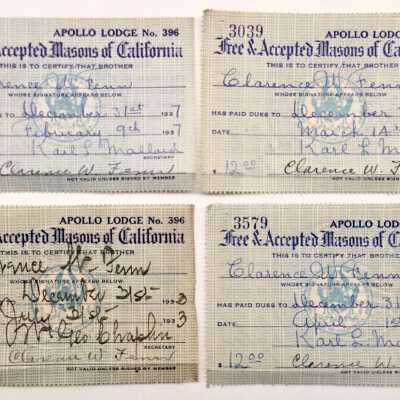 APOLLO LODGE No. 396
Accepted Masons of California
THIS IS TO CERTIFY THAT BROTHER
rence W. Fenn
WHOSE SIGNATURE APPEARS BELOW
December 31st 1937
February 9th 1937
Karl L. Mallard
SECRETARY
Clarence W. Fenn
NOT VALID UNLESS SIGNED BY MEMBER
3039
APOLLO LOD
Free & Accepted Masons of C
THIS IS TO CERTIFY THAT BRO
Clarence W. Fenn
WHOSE SIGNATURE APPEARS BELOW
HAS PAID DUES TO December 3
DATE March 1st
Karl L. M
$12.00
Clarence W. F
NOT VALID UNLESS SIGNED BY M
APOLLO LODGE No. 396
Accepted Masons of California
THIS IS TO CERTIFY THAT BROTHER
rence W. Fenn
December 31st 193
July 31st 1933
Geo Chaplin
SECRETARY
Clarence W. Fenn
NOT VALID UNLESS SIGNED BY MEMBER
3579
APOLLO LOD
Free & Accepted Masons of C
THIS IS TO CERTIFY THAT BRO
Clarence W. Fenn
WHOSE SIGNATURE APPEARS BELOW
HAS PAID DUES TO December 31
DATE April 1s
Karl L. Ma
$12.00
Clarence W.
NOT VALID UNLESS SIGNED BY M